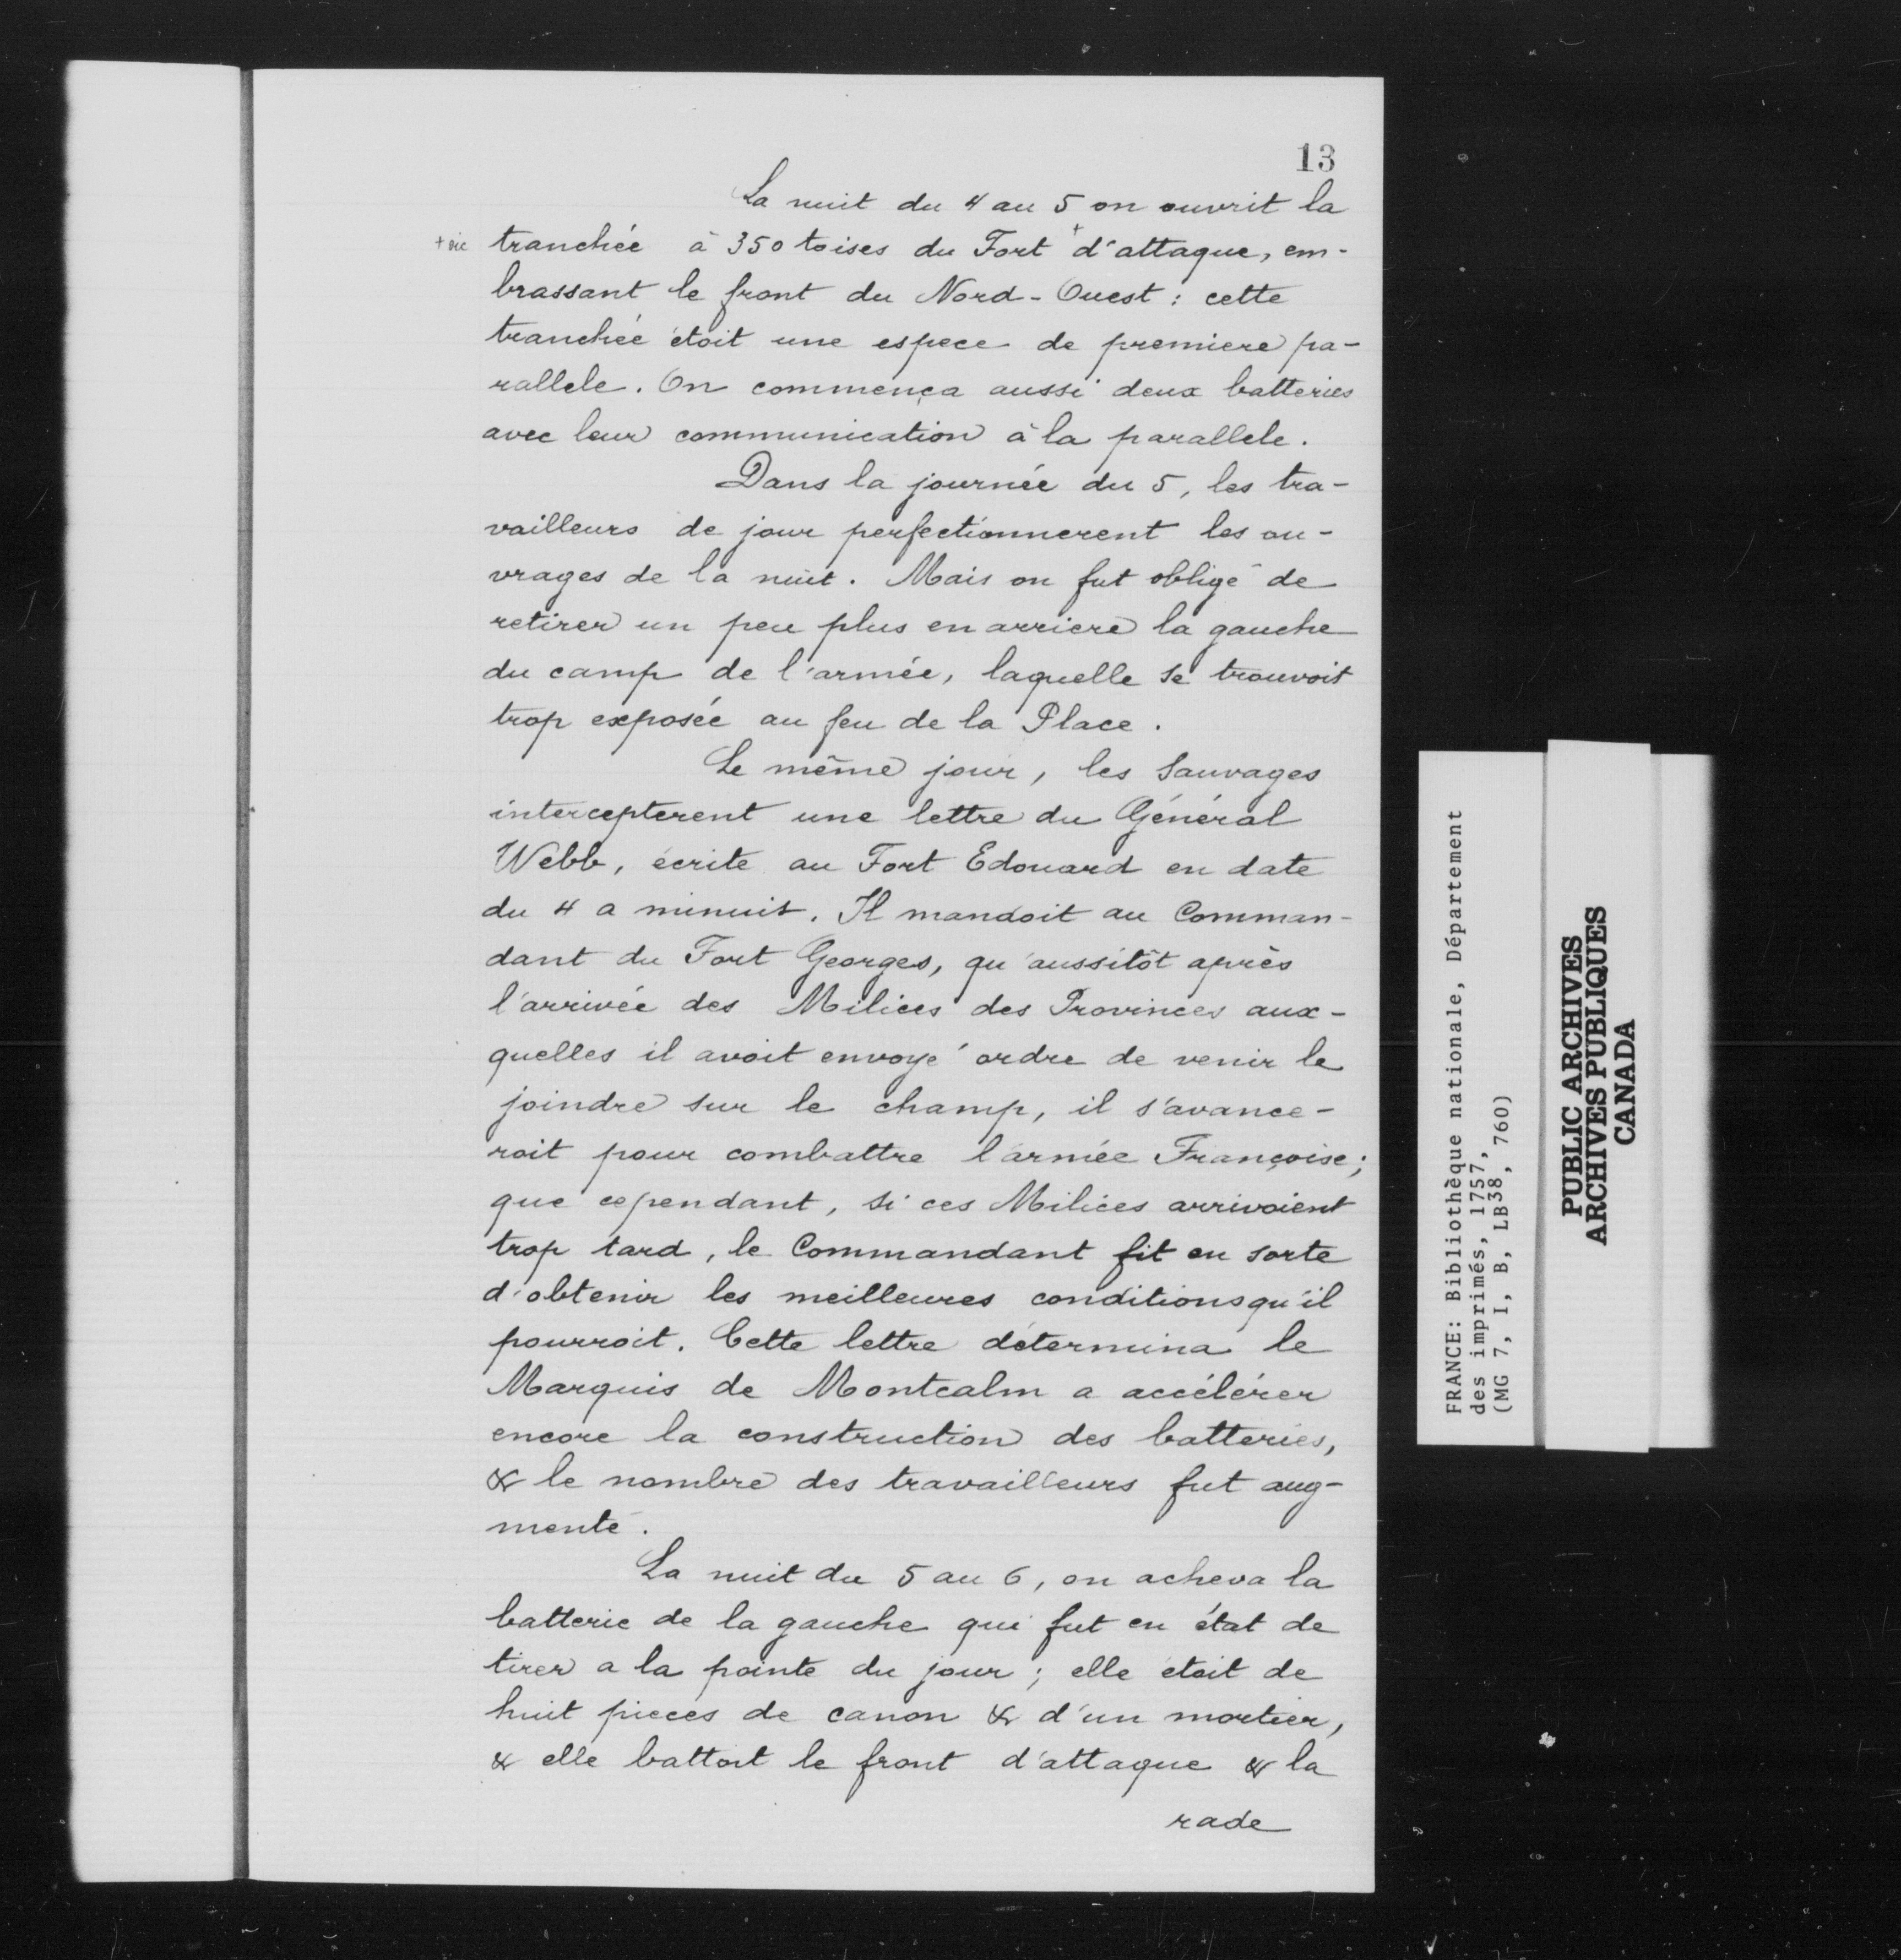 13
La nuit du 4 au 5 on ouvrit la
+ sic tranchée à 350 toises du Fort + d'attaque, em-
brassant le front du Nord-Ouest : cette
tranchée étoit une espece de premiere pa-
rallele. On commença aussi deux batteries
avec leur communication à la parallele.
Dans la journée du 5, les tra-
vailleurs de jour perfectionnerent les ou-
vrages de la nuit. Mais on fut obligé de
retirer un peu plus en arriere la gauche
du camp de l'armée, laquelle se trouvoit
trop exposée au feu de la Place.
Le même jour, les Sauvages
intercepterent une lettre du Général
Webb, écrite au Fort Edouard en date
du 4 a minuit. Il mandoit au Comman-
dant du Fort Georges, qu'aussitôt après
l'arrivée des Milices des Provinces aux-
quelles il avoit envoyé ordre de venir le
joindre sur le champ, il s'avance-
roit pour combattre l'armée Françoise;
que cependant, si ces Milices arrivoient
trop tard, le Commandant fit en sorte
d'obtenir les meilleures conditions qu'il
pourroit. Cette lettre détermina le
Marquis de Montcalm a accélérer
encore la construction des batteries,
& le nombre des travailleurs fut aug-
menté.
La nuit du 5 au 6, on acheva la
batterie de la gauche qui fut en état de
tirer a la pointe du jour ; elle étoit de
huit pieces de canon & d'un mortier,
& elle battoit le front d'attaque & la
rade
FRANCE: Bibliothèque nationale, Département
des imprimés, 1757,
(MG 7, I, B, LB38, 760)
PUBLIC ARCHIVES
ARCHIVES PUBLIQUES
CANADA